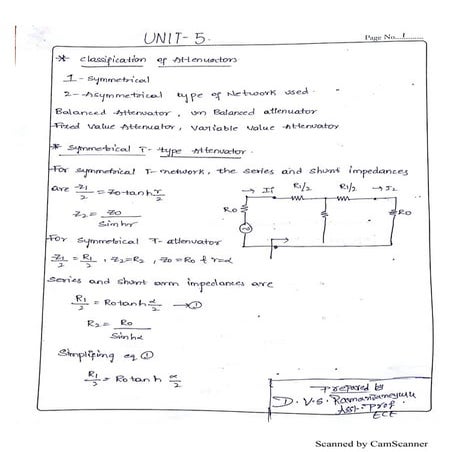 UNIT-5.
Page No...1........
* Classification of Attenuators
1- Symmetrical
2- Asymmetrical type of Network used.
Balanced Attenuator, un Balanced attenuator
Fixed Value Attenuator, Variable value Attenuator
* Symmetrical T- type Attenuator.
For symmetrical T-network, the series and shunt impedances
are Z1/2 = Z0 tanh r/2
Z2 = Z0/Sinhr
→ I1 R1/2 R1/2 → I2
R0 R0
For Symmetrical T- attenuator
Z1/2 = R1/2, Z2=R2, Z0=R0 & r=α
Series and Shunt arm impedances are
R1/2 = R0 tanh α/2 → ①
R2 = R0/Sinhα
Simplifing eq ①
R1/2 = R0 tanh α/2
Prepared by
D.V.S.
Asst. Prof
ECE
Scanned by CamScanner